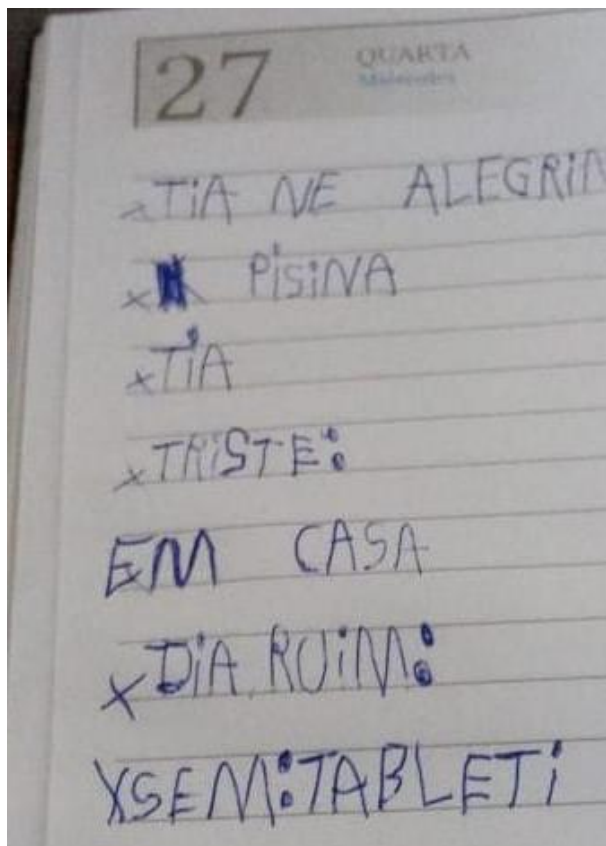 27 QUARTA
Miércoles
x TiA NE ALEGRiA
x PiSiNA
x TiA
x TRiSTE:
EM CASA
x DiA RUiM:
XSEM:TABLETi